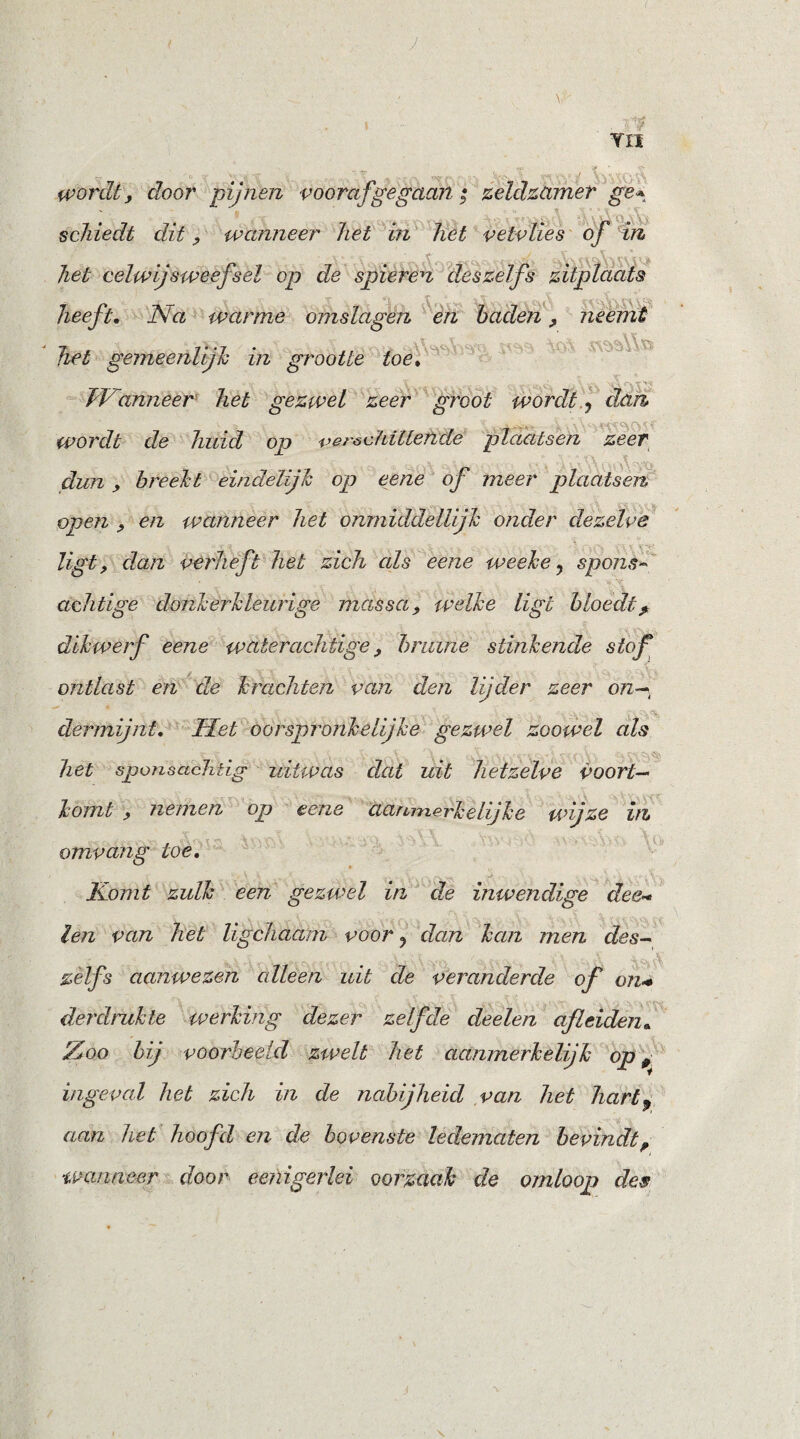 VII
wordt, door pijnen voorafgegaan; zeldzamer ge-
schiedt dit, wanneer het in het vetvlies of in
het celwijsweefsel op de spieren deszelfs zitplaats
heeft. Na warme omslagen en baden, neemt
het gemeenlijk in grootte toe.
Wanneer het gezwel zeer groot wordt, dan
wordt de huid op verschillende plaatsen zeer
dun, breekt eindelijk op eene of meer plaatsen
open, en wanneer het onmiddellijk onder dezelve
ligt, dan verheft het zich als eene weeke, spons-
achtige donkerkleurige massa, welke ligt bloedt,
dikwerf eene waterachtige, bruine stinkende stof
ontlast en de krachten van den lijder zeer on-
dermijnt. Het oorspronkelijke gezwel zoowel als
het sponsachtig uitwas dat uit hetzelve voort-
komt, nemen op eene aanmerkelijke wijze in
omvang toe.
Komt zulk een gezwel in de inwendige dee-
len van het ligchaam voor, dan kan men des-
zelfs aanwezen alleen uit de veranderde of on-
derdrukte werking dezer zelfde deelen afleiden.
Zoo bij voorbeeld zwelt het aanmerkelijk op,
ingeval het zich in de nabijheid van het hart,
aan het hoofd en de bovenste ledematen bevindt,
wanneer door eenigerlei oorzaak de omloop des